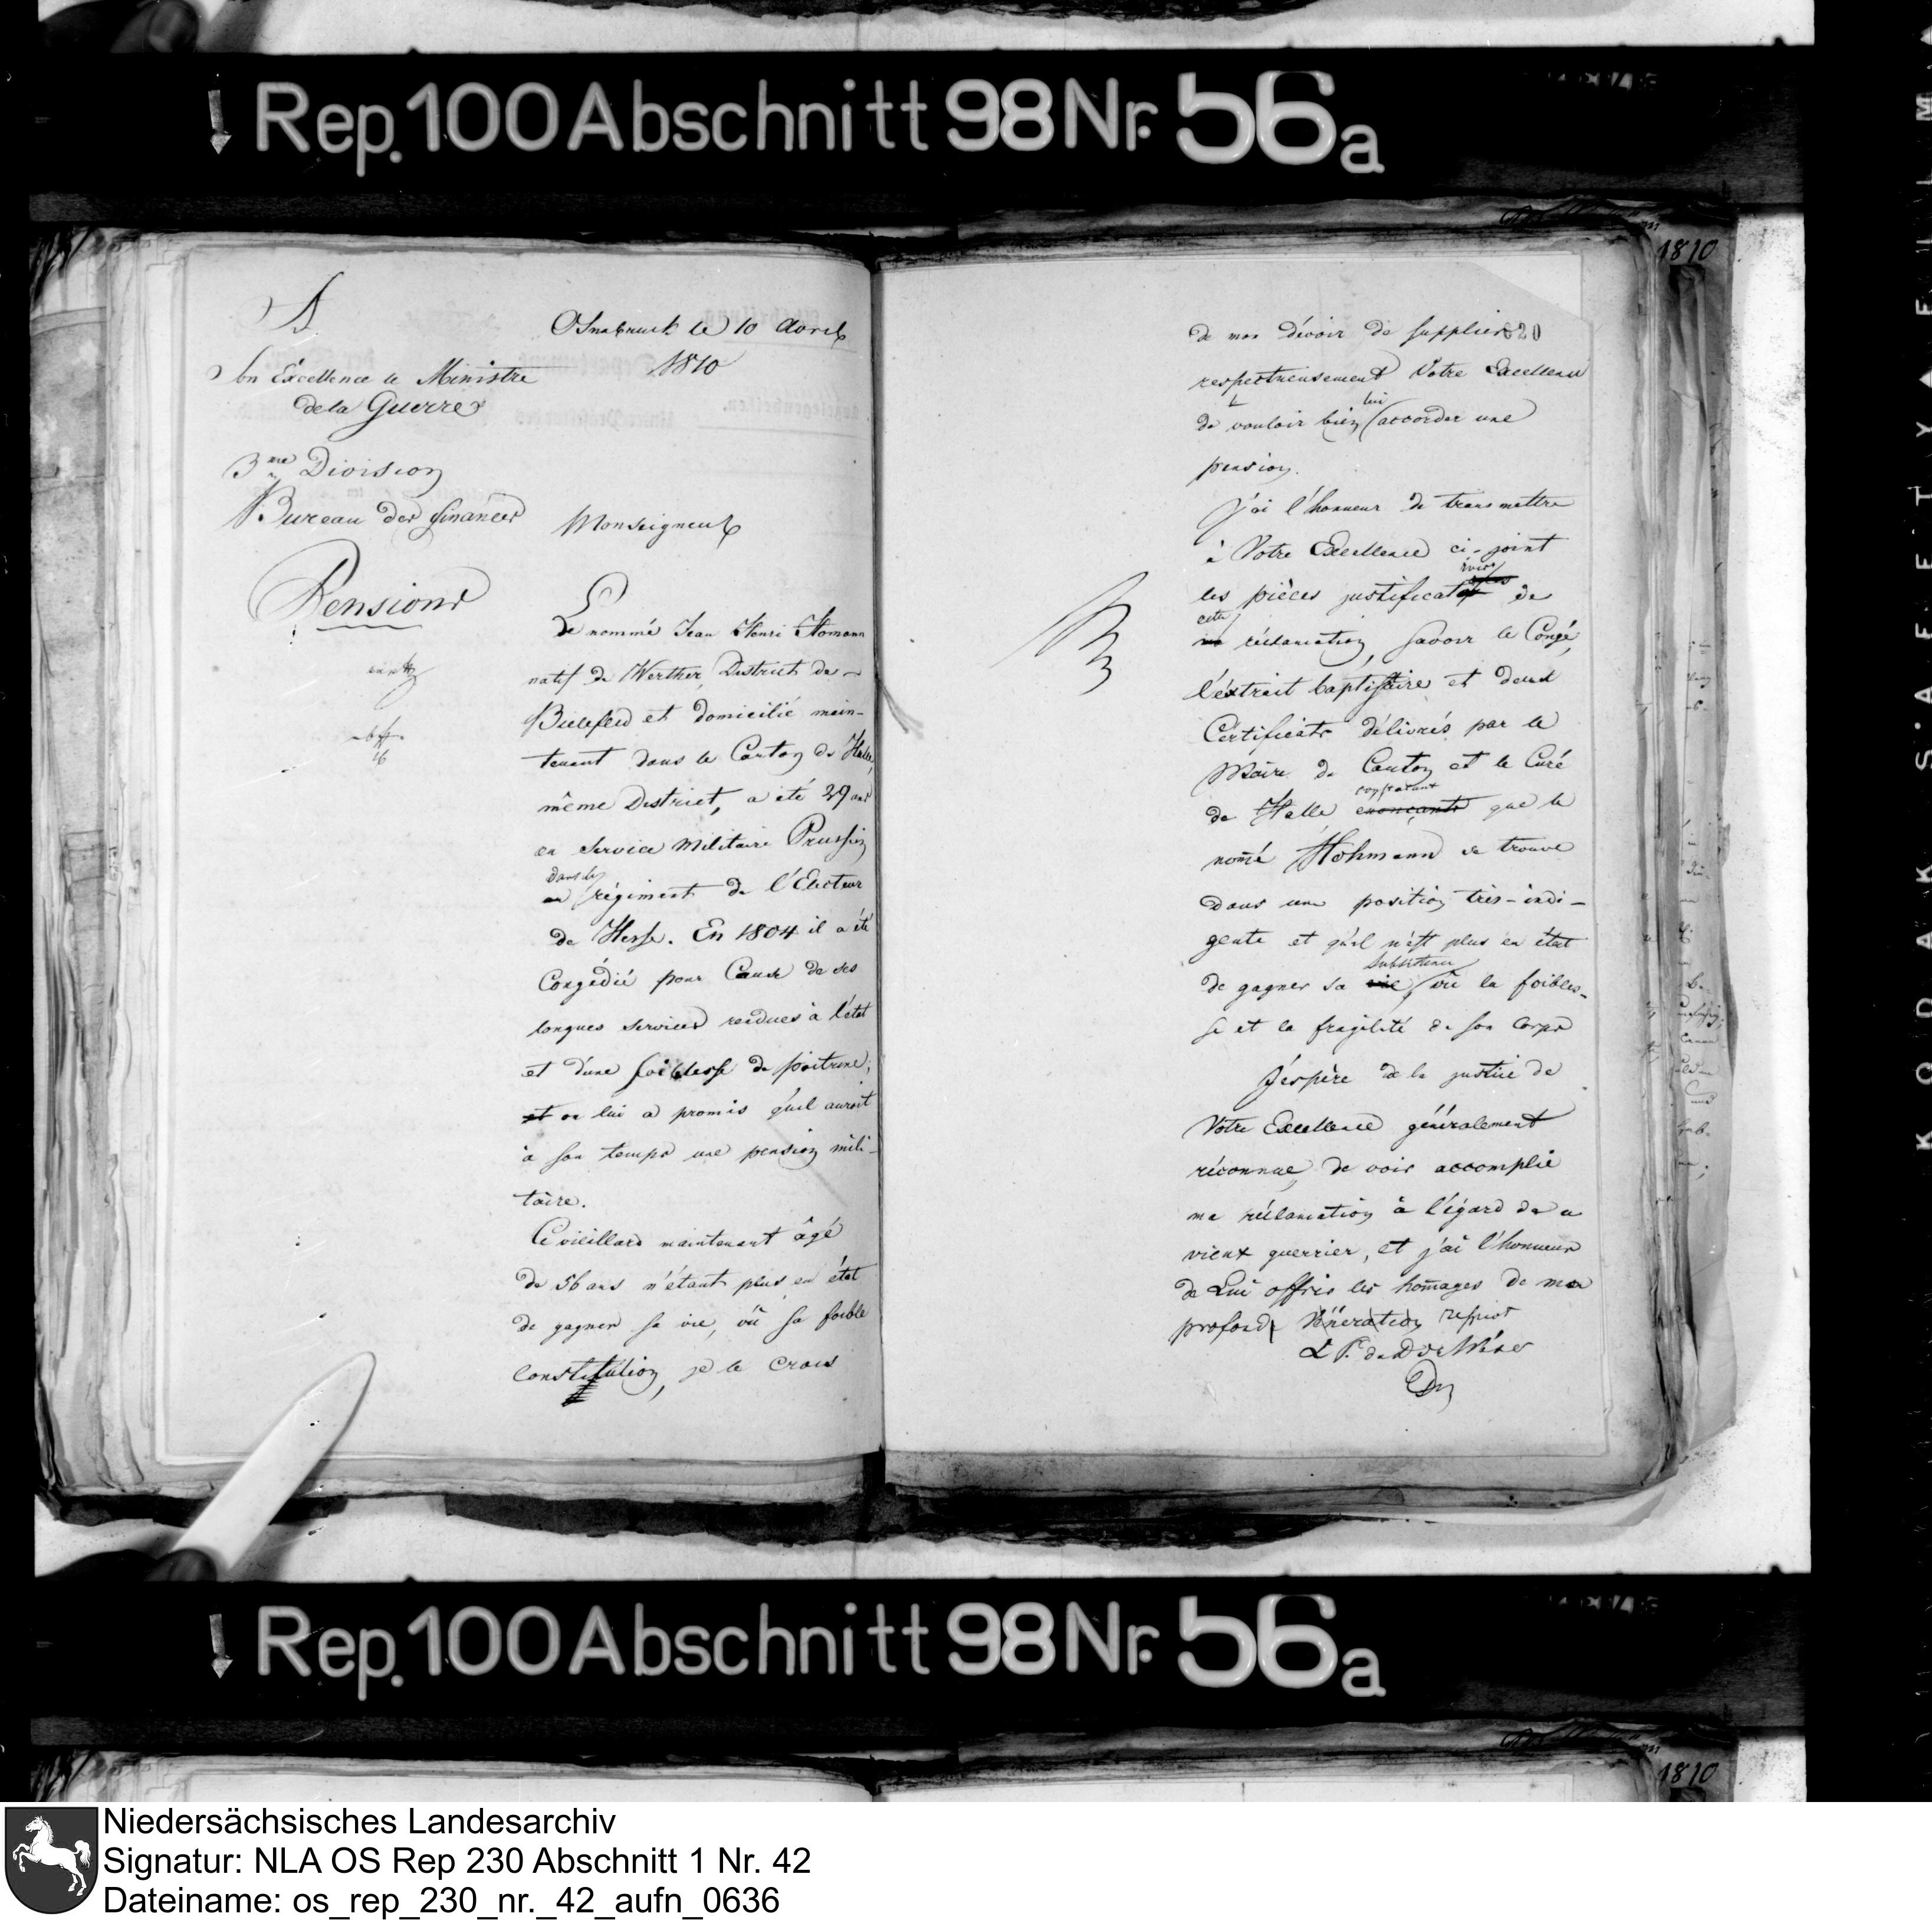 Rep. 100 Abschnitt 98 Nr. 56a
1810
A
Son Excellence le Ministre
de la Guerre
3me Division
Bureau des finances
Pensions
Osnabruck le 10 Avril
1810
Monseigneur
Le nommé Jean Henri Homann
natif de Werther, District de
Bielefeld et domicilié main-
tenant dans le Canton de Halle,
même District, a été 29 ans
en Service Militaire Prussien
dans le
au régiment de l'Electeur
de Hesse. En 1804 il a été
Congédié pour Cause de ses
longues services rendues à l'état
et d'une foiblesse de poitrine,
et on lui a promis qu'il auroit
à son temps une pension mili-
taire.
Ce vieillard maintenant âgé
de 56 ans n'étant plus en état
de gagner sa vie, vû sa foible
constitution, je le crois
de mon dévoir de supplier
620
respectueusement Votre Excellence
lui
de vouloir bien accorder une
pension.
J'ai l'honneur de transmettre
à Votre Excellence ci-joint
les pièces justificat de
cette
ma réclamation, savoir le Congé,
l'extrait baptistaire et deux
Certificats délivrés par le
Maire de Canton et le Curé
de Halle énonçants que le
nom̄é Hohmann se trouve
dans une position très-indi-
gente et qu'il n'est plus en état
subsistence
de gagner sa vie, vû la foibles-
se et la fragilité de son Corps
J'espère de la justice de
Votre Excellence généralement
réconnue, de voir accomplie
ma réclamation à l'égard de ce
vieux guerrier, et j'ai l'honneur
de Lui offrir les hom̄ages de mon
profond Vénération respect
L P. de D de Wéser
Rep. 100 Abschnitt 98 Nr. 56a
1810
Niedersächsisches Landesarchiv
Signatur: NLA OS Rep 230 Abschnitt 1 Nr. 42
Dateiname: os_rep_230_nr._42_aufn_0636